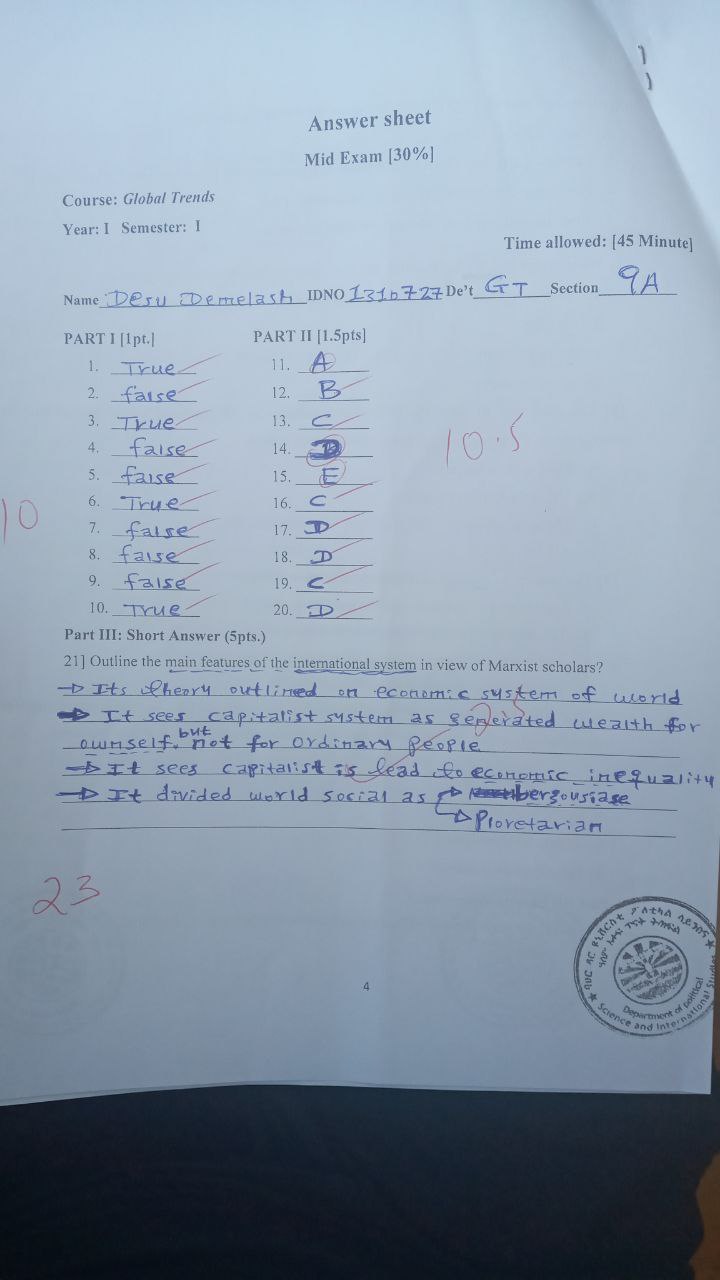 Answer sheet
Mid Exam [30%]
Course: Global Trends
Year: I Semester: I
Time allowed: [45 Minute]
Name Desu Demelash IDNO 1310727 De't GT Section 9A
PART I [1pt.] PART II [1.5pts]
1. True 11. A
2. false 12. B
3. True 13. C
4. false 14. D
5. false 15. E
6. True 16. C
7. false 17. D
8. false 18. D
9. false 19. C
10. True 20. D
10
10.5
Part III: Short Answer (5pts.)
21] Outline the main features of the international system in view of Marxist scholars?
→ Its theory outlined on economic system of world
→ It sees capitalist system as generated wealth for
ownself, but not for ordinary people
→ It sees capitalist is lead to economic inequality
→ It divided world social as → bergousiase
→ Ploretarian
23
4
Department of Political
Science and International Studies